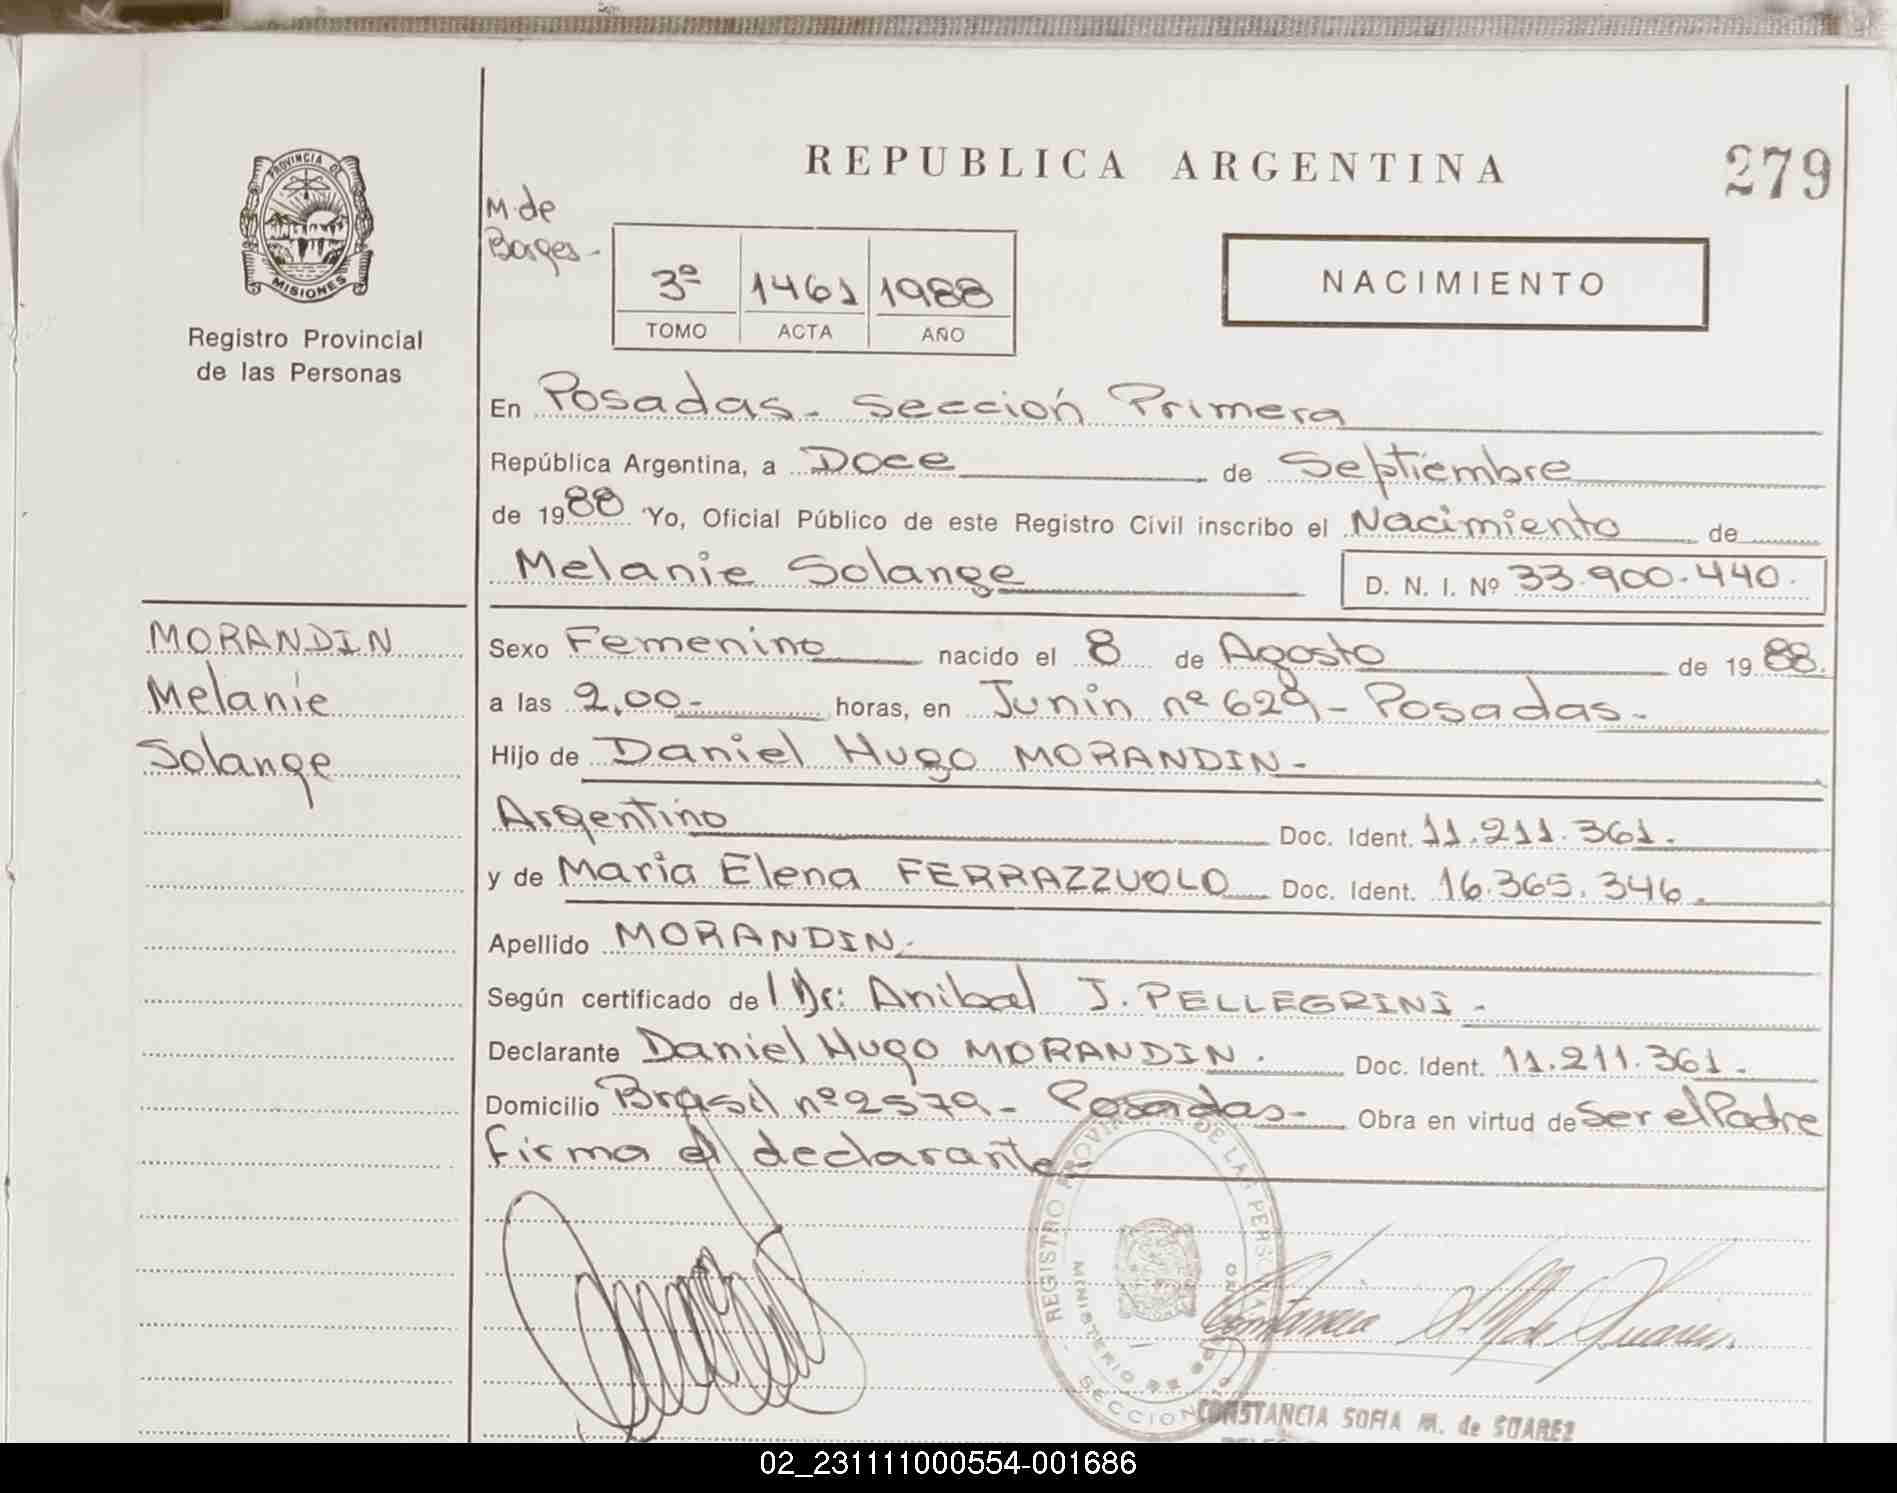 REPUBLICA ARGENTINA
279
PROVINCIA DE
MISIONES
Registro Provincial
de las Personas
M. de
Borges -
3º 1461 1988
TOMO ACTA AÑO
NACIMIENTO
En Posadas - Sección Primera
República Argentina, a Doce de Septiembre
de 1988 Yo, Oficial Público de este Registro Civil inscribo el Nacimiento de
Melanie Solange
D. N. I. Nº 33.900.440.
MORANDIN
Melanie
Solange
Sexo Femenino nacido el 8 de Agosto de 1988.
a las 2,00- horas, en Junin nº 629 - Posadas -
Hijo de Daniel Hugo MORANDIN -
Argentino Doc. Ident. 11.211.361.
y de Maria Elena FERRAZZUOLO Doc. Ident. 16.365.346.
Apellido MORANDIN.
Según certificado de Dr: Anibal J. PELLEGRINI -
Declarante Daniel Hugo MORANDIN. Doc. Ident. 11.211.361.
Domicilio Brasil nº 2579 - Posadas - Obra en virtud de Ser el Padre
firma el declarante -
REGISTRO PROVINCIAL DE LAS PERSONAS
MINISTERIO DE
SECCION
CONSTANCIA SOFIA M. de SUAREZ
02_231111000554-001686